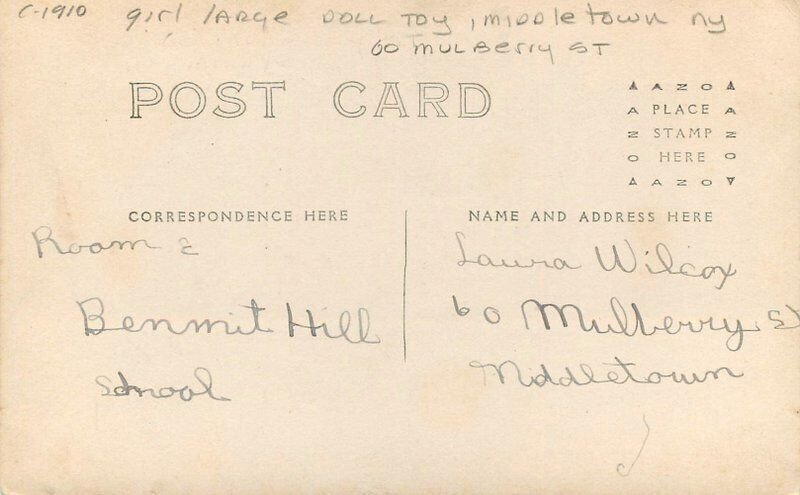 C-1910 girl large DOLL Toy, middletown ny
60 mulberry ST
POST CARD
AZO
PLACE
STAMP
HERE
AZO
CORRESPONDENCE HERE
NAME AND ADDRESS HERE
Room 2
Benmit Hill
School
Laura Wilcox
60 Mulberry St
Middletown